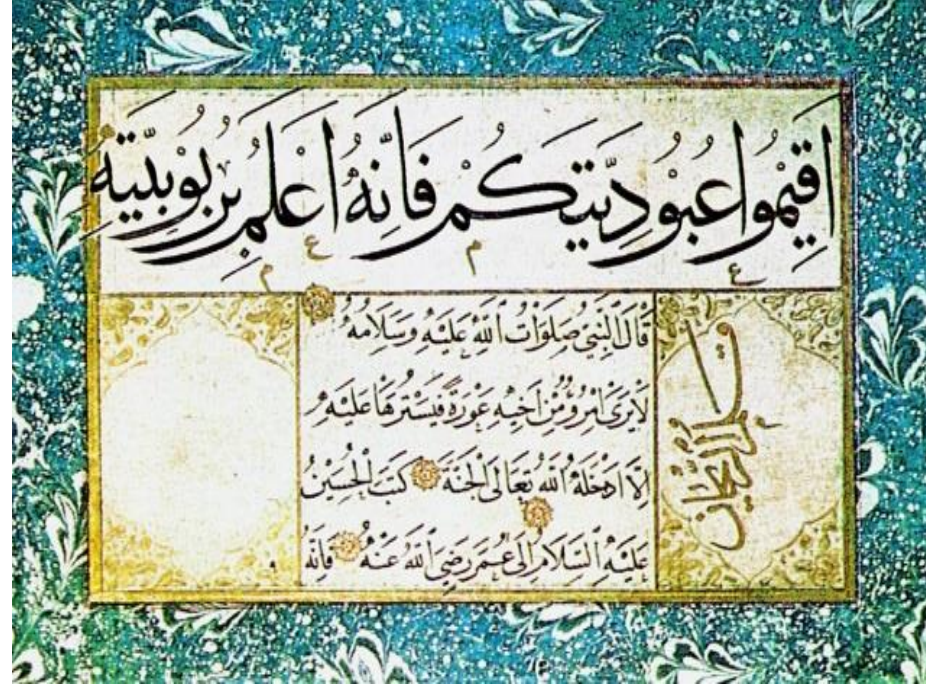 اَقِيْمُوا عُبُوْدِيَّتَكُمْ فَاِنَّهُ اَعْلَمُ بِرُبُوْبِيَّتِهِ
قَالَ النَّبِيُّ صَلَوَاتُ اللّٰهِ عَلَيْهِ وَسَلَامُهُ
لَايَرَى امْرُؤٌ مِّنْ اَخِيْهِ عَوْرَةً فَيَسْتُرُهَا عَلَيْهِ
اِلَّا اَدْخَلَهُ اللّٰهُ تَعَالَى الْجَنَّةَ كَتَبَ الْحُسَيْنُ
عَلَيْهِ السَّلَامُ اِلَى عُمَرَ رَضِيَ اللّٰهُ عَنْهُ فَاِنَّهُ